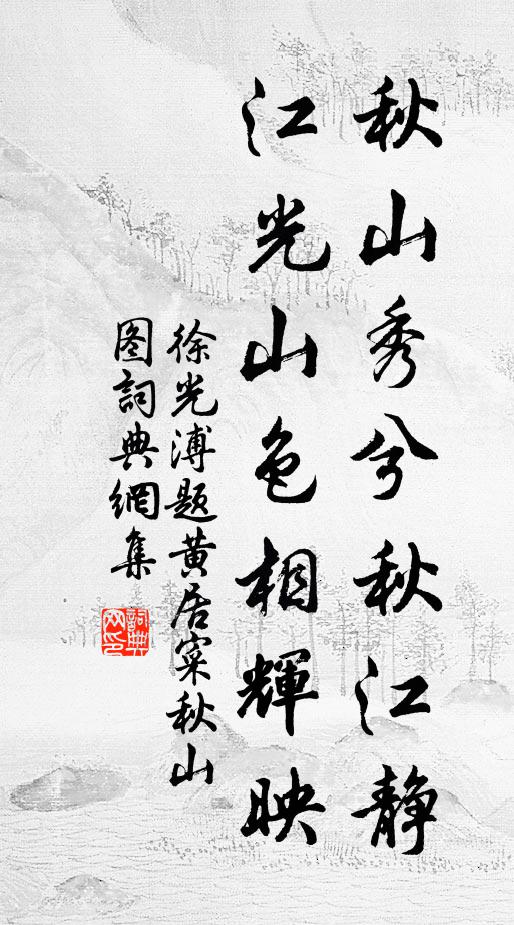 秋山秀兮秋江静
江光山色相輝映
徐光溥题黄居寀秋山
图詞典網集
詞典網印